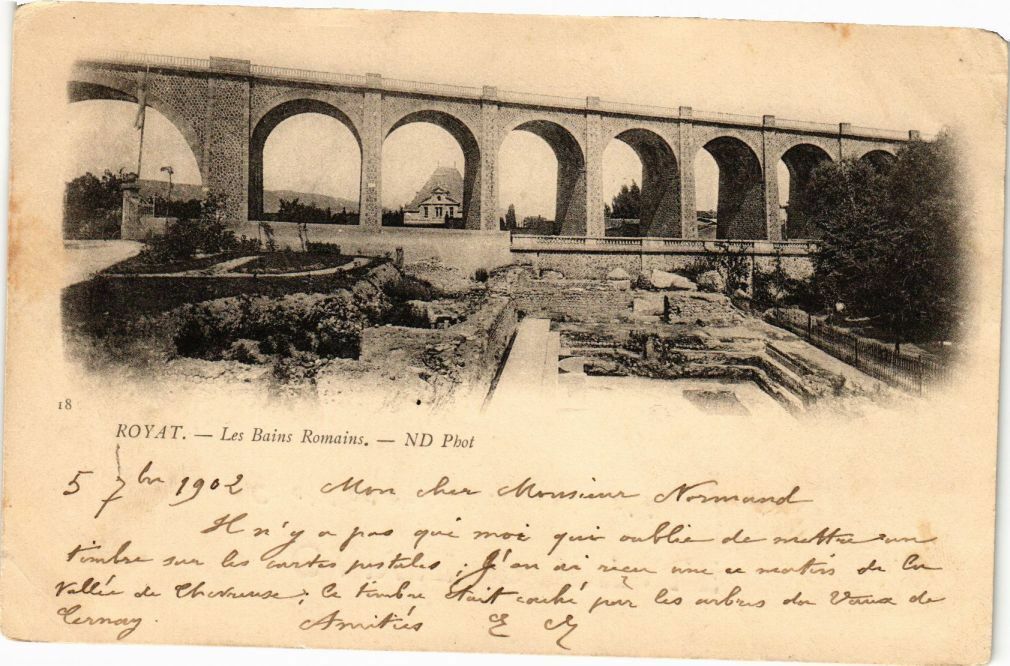 18
ROYAT. — Les Bains Romains. — ND Phot
5 7bre 1902 Mon cher Monsieur Normand
Il n'y a pas que moi qui oublie de mettre un
timbre sur les cartes postales ; J'en ai reçu une ce matin de la
vallée de Chevreuse ; le timbre était caché par les arbres des Vaux de
Cernay. Amitiés